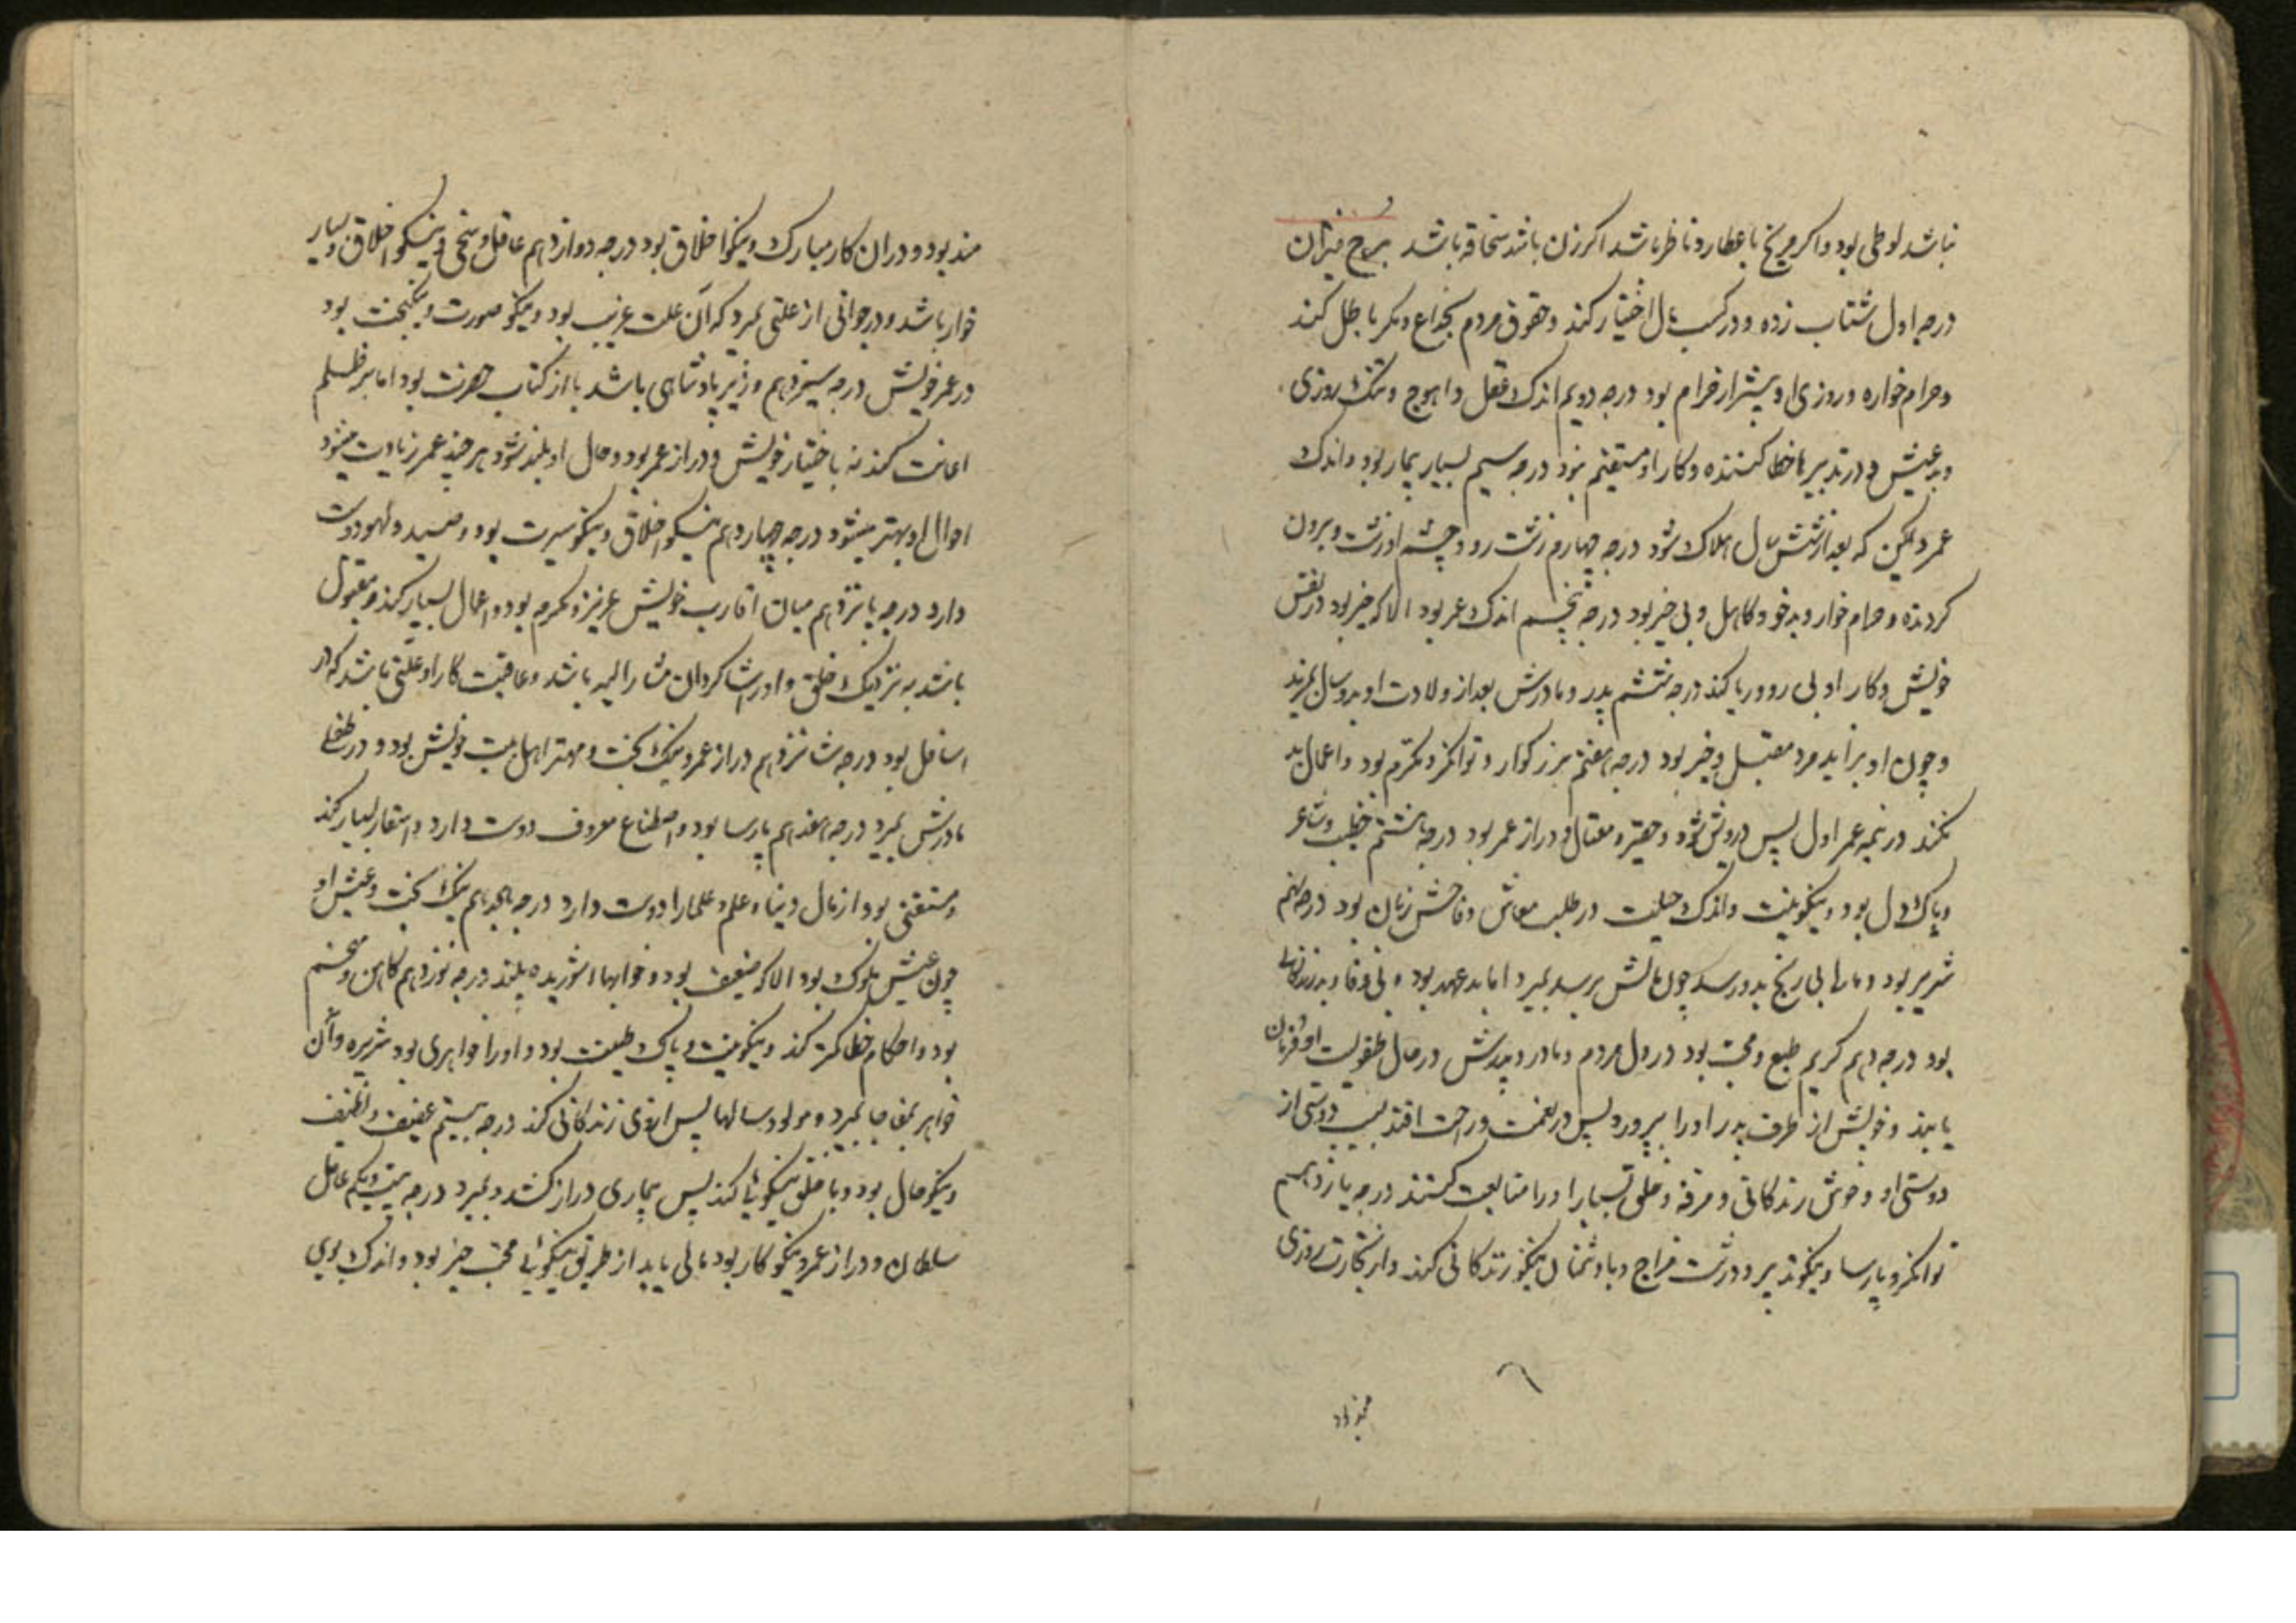 نباشد لوطی بود و اگر مریخ با عطارد ناظر باشد اگر زن باشد سحاقه باشد برج میزان
درجه اول شتاب زده و در کسب مال اختیار کند و حقوق مردم بخداع و مکر باطل کند
و حرام خواره و روزی او بیشتر از حرام بود درجه دویم اندک عقل و اهوج و تنک روزی
و بد عیش و در تدبیرها خطا کننده و کار او مستقیم نبود درجه سیم بسیار بیمار بود و اندک
عمر و لیکن که بعد از شش سال هلاک شود درجه چهارم زشت رو و چشم او زشت و برون
کرده و حرام خوار و بد خو و کاهل و بی خیر بود درجه پنجم اندک عمر بود الا که خیر بود در نفس
خویش و کار او بی روو ریا کند درجه ششم پدر و مادرش بعد از ولادت او بدو سال بمیرند
و چون او برآید مرد مقبل و خیر بود درجه هفتم بزرکوار و توانکر و مکرم بود و اعمال بد
نکند در نیمه عمر اول پس درویش شود و حقیر و محتال و دراز عمر بود درجه هشتم خطیب و شاعر
و پاک دل بود و نیکو نیت و اندک حیلت در طلب معاش و فاحش زبان بود درجه نهم
شریر بود و مالها بی رنج بدو رسد چون مالش برسد بمیرد اما بد عهد بود و بی وفا و بد زندکانی
بود درجه دهم کریم طبع و محب بود در دل مردم و مادر و پدرش در حال طفولیت او فرمان
یابند و خویش از طرف پدر او را بپرورد پس در نعمت و راحت افتد بسبب دوستی از
دوستی او و خوش زندکانی و مرفه و خلق بسیار او را متابعت کنند درجه یازدهم
توانکر و پارسا و نیکو تدبیر و درشت مزاج و با دشمنان نیکو زندکانی کند و از تجارت روزی
مند بود و در ان کار مبارک و نیکو اخلاق بود درجه دوازدهم عاقل و سخی و نیکو اخلاق و بسیار
خوار باشد و در جوانی از علتی بمیرد که آن علت غریب بود و نیکو صورت و نیکبخت بود
در عمر خویش درجه سیزدهم وزیر پادشاهی باشد یا از کتاب حضرت بود اما بر ظلم
اعانت کند نه باختیار خویش و دراز عمر بود و حال او بلند شود هر چند عمر زیادت میشود
احوال او بهتر میشود درجه چهاردهم نیکو اخلاق و نیکو سیرت بود و صید و لهو دوست
دارد درجه پانزدهم میان اقارب خویش عزیز و مکرم بود و اعمال بسیار کند و مقبول
باشد به نزدیک خلق و او را شاکردان مشار الیه باشد و عاقبت کار او علتی باشد که در
اسافل بود درجه شانزدهم دراز عمر و نیک بخت و مهتر اهل بیت خویش بود و در طفلی
مادرش بمیرد درجه هفدهم پارسا بود و اصطناع معروف دوست دارد و اسفار بسیار کند
و مستغنی بود از مال دنیا و علم و علما را دوست دارد درجه هجدهم نیک بخت و عیش او
چون عیش ملوک بود الا که ضعیف بود و خوابها شوریده بیند درجه نوزدهم کاهن و منجم
بود و احکام خطا کمتر کند و نیکو نیت و پاک طینت بود و او را خواهری بود شریره و آن
خواهر بمفاجا بمیرد و مولود سالها پس از وی زندکانی کند درجه بیستم عفیف و نظیف
و نیکو حال بود و با خلق نیکویی کند پس بیماری دراز کشد و بمیرد درجه بیست و یکم عامل
سلطان و دراز عمر و نیکو کار بود مالی یابد از طریق نیکویی محب خیر بود و اندک بدی